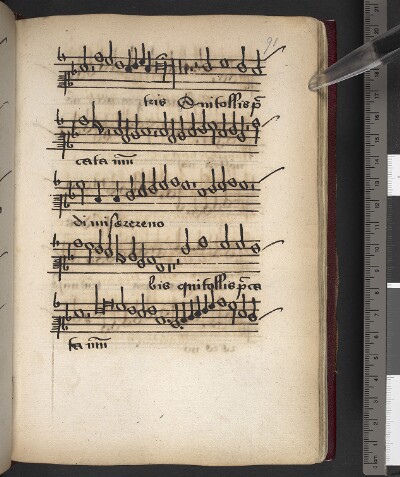 91
tris Qui tollis pc̄
cata mu
di miserereno
bis qui tollis pc̄ca
ta mu